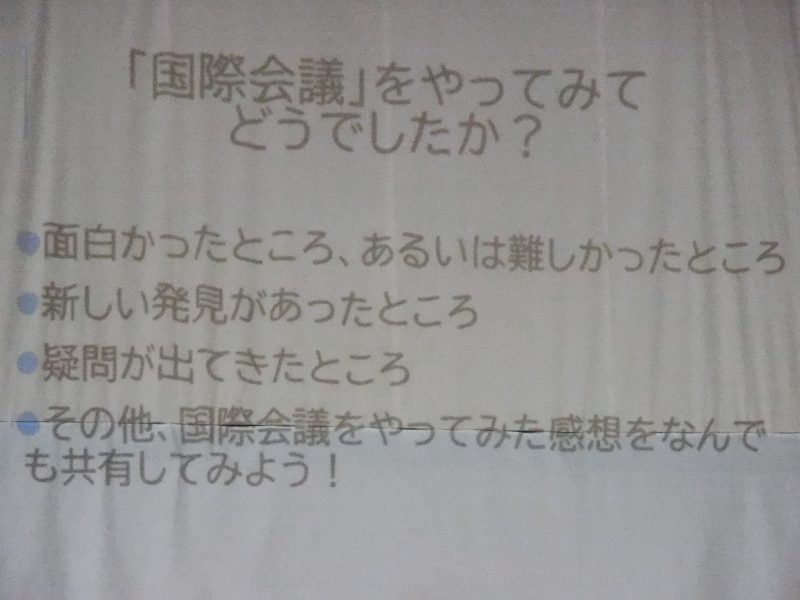 「国際会議」をやってみて
どうでしたか？
●面白かったところ、あるいは難しかったところ
●新しい発見があったところ
●疑問が出てきたところ
●その他、国際会議をやってみた感想をなんで
も共有してみよう！